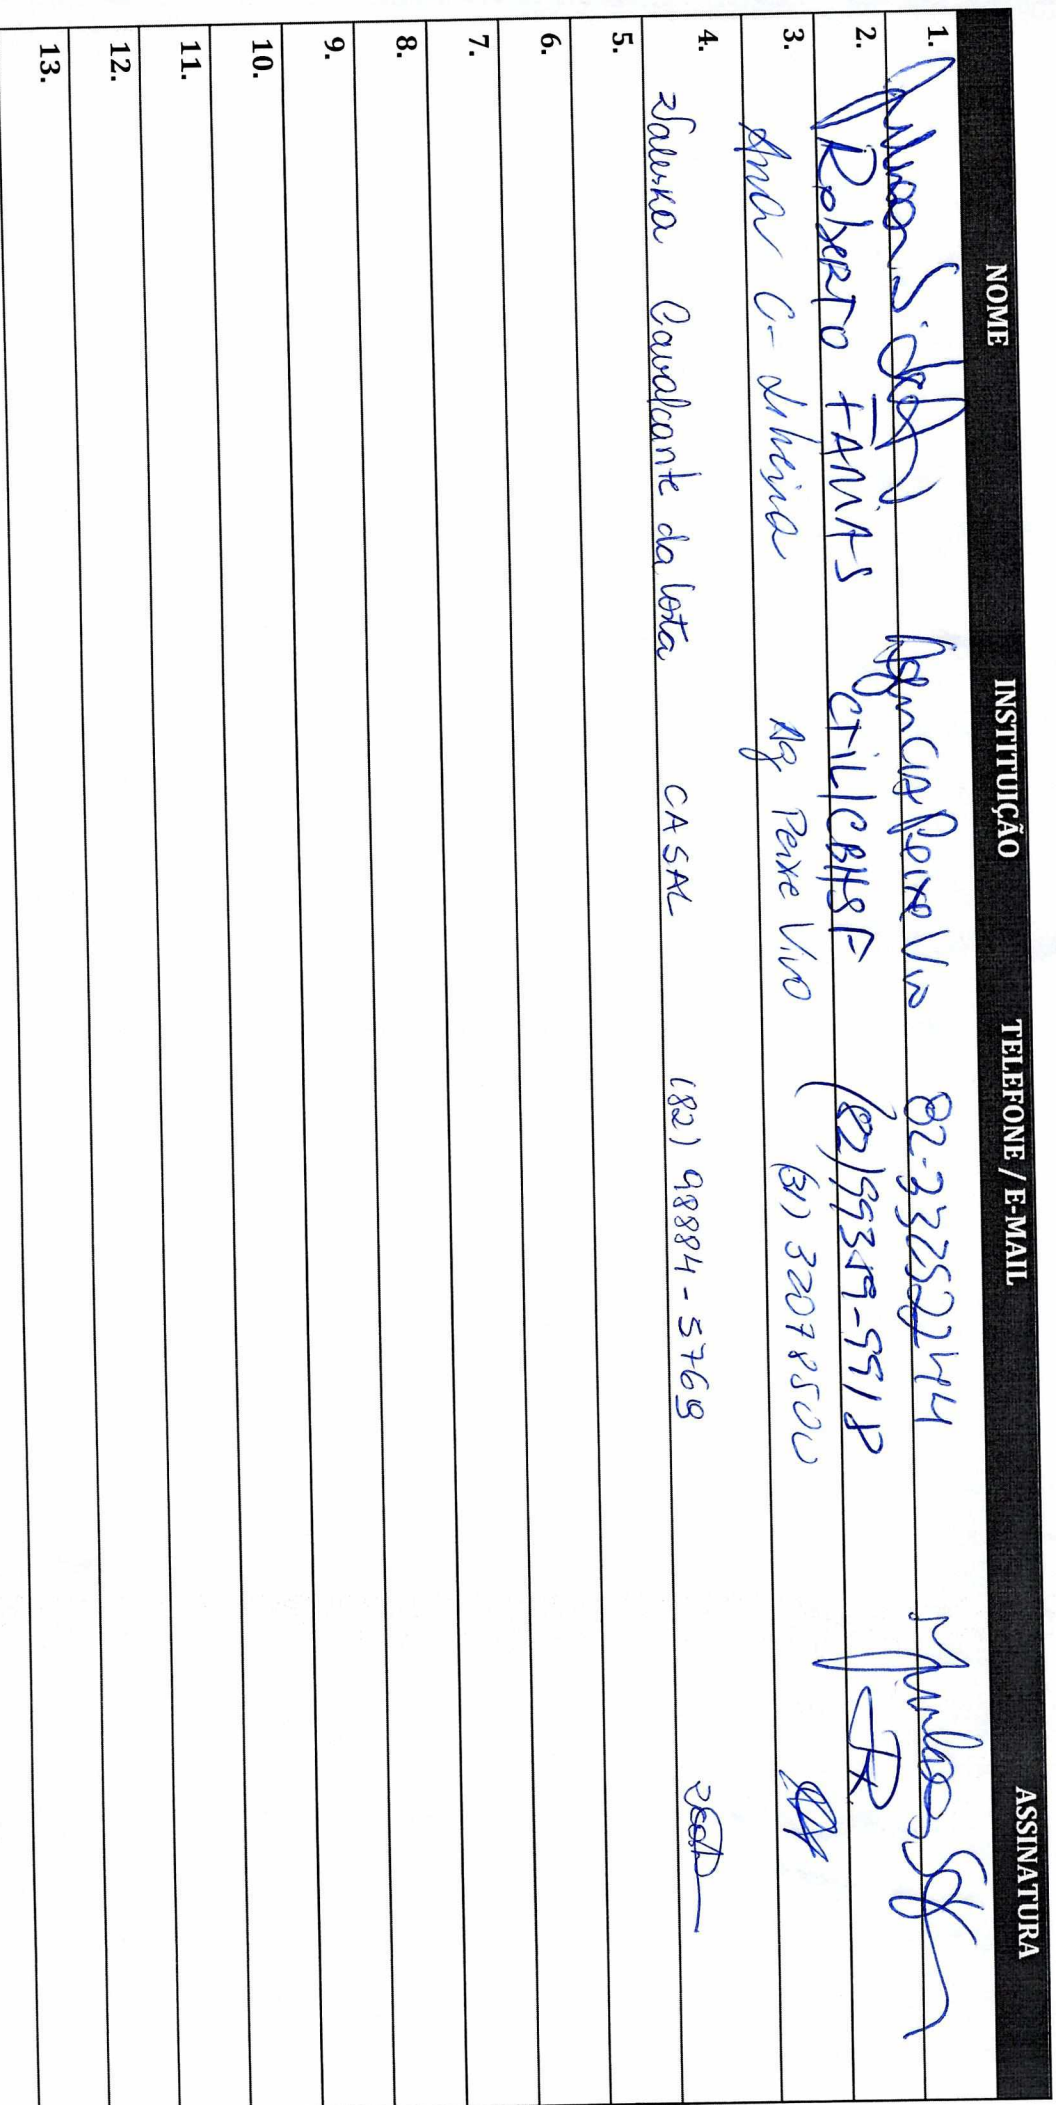 NOME INSTITUIÇÃO TELEFONE / E-MAIL ASSINATURA
1. Agência Peixe Vivo 82-33252244
2. Roberto FARIAS CTIL/CBHSF (82)99349-9918
3. Ana C- Ag Peixe Vivo (31) 32078500
4. Valeska Cavalcante da Costa CASAL (82) 98884-5769
5.
6.
7.
8.
9.
10.
11.
12.
13.